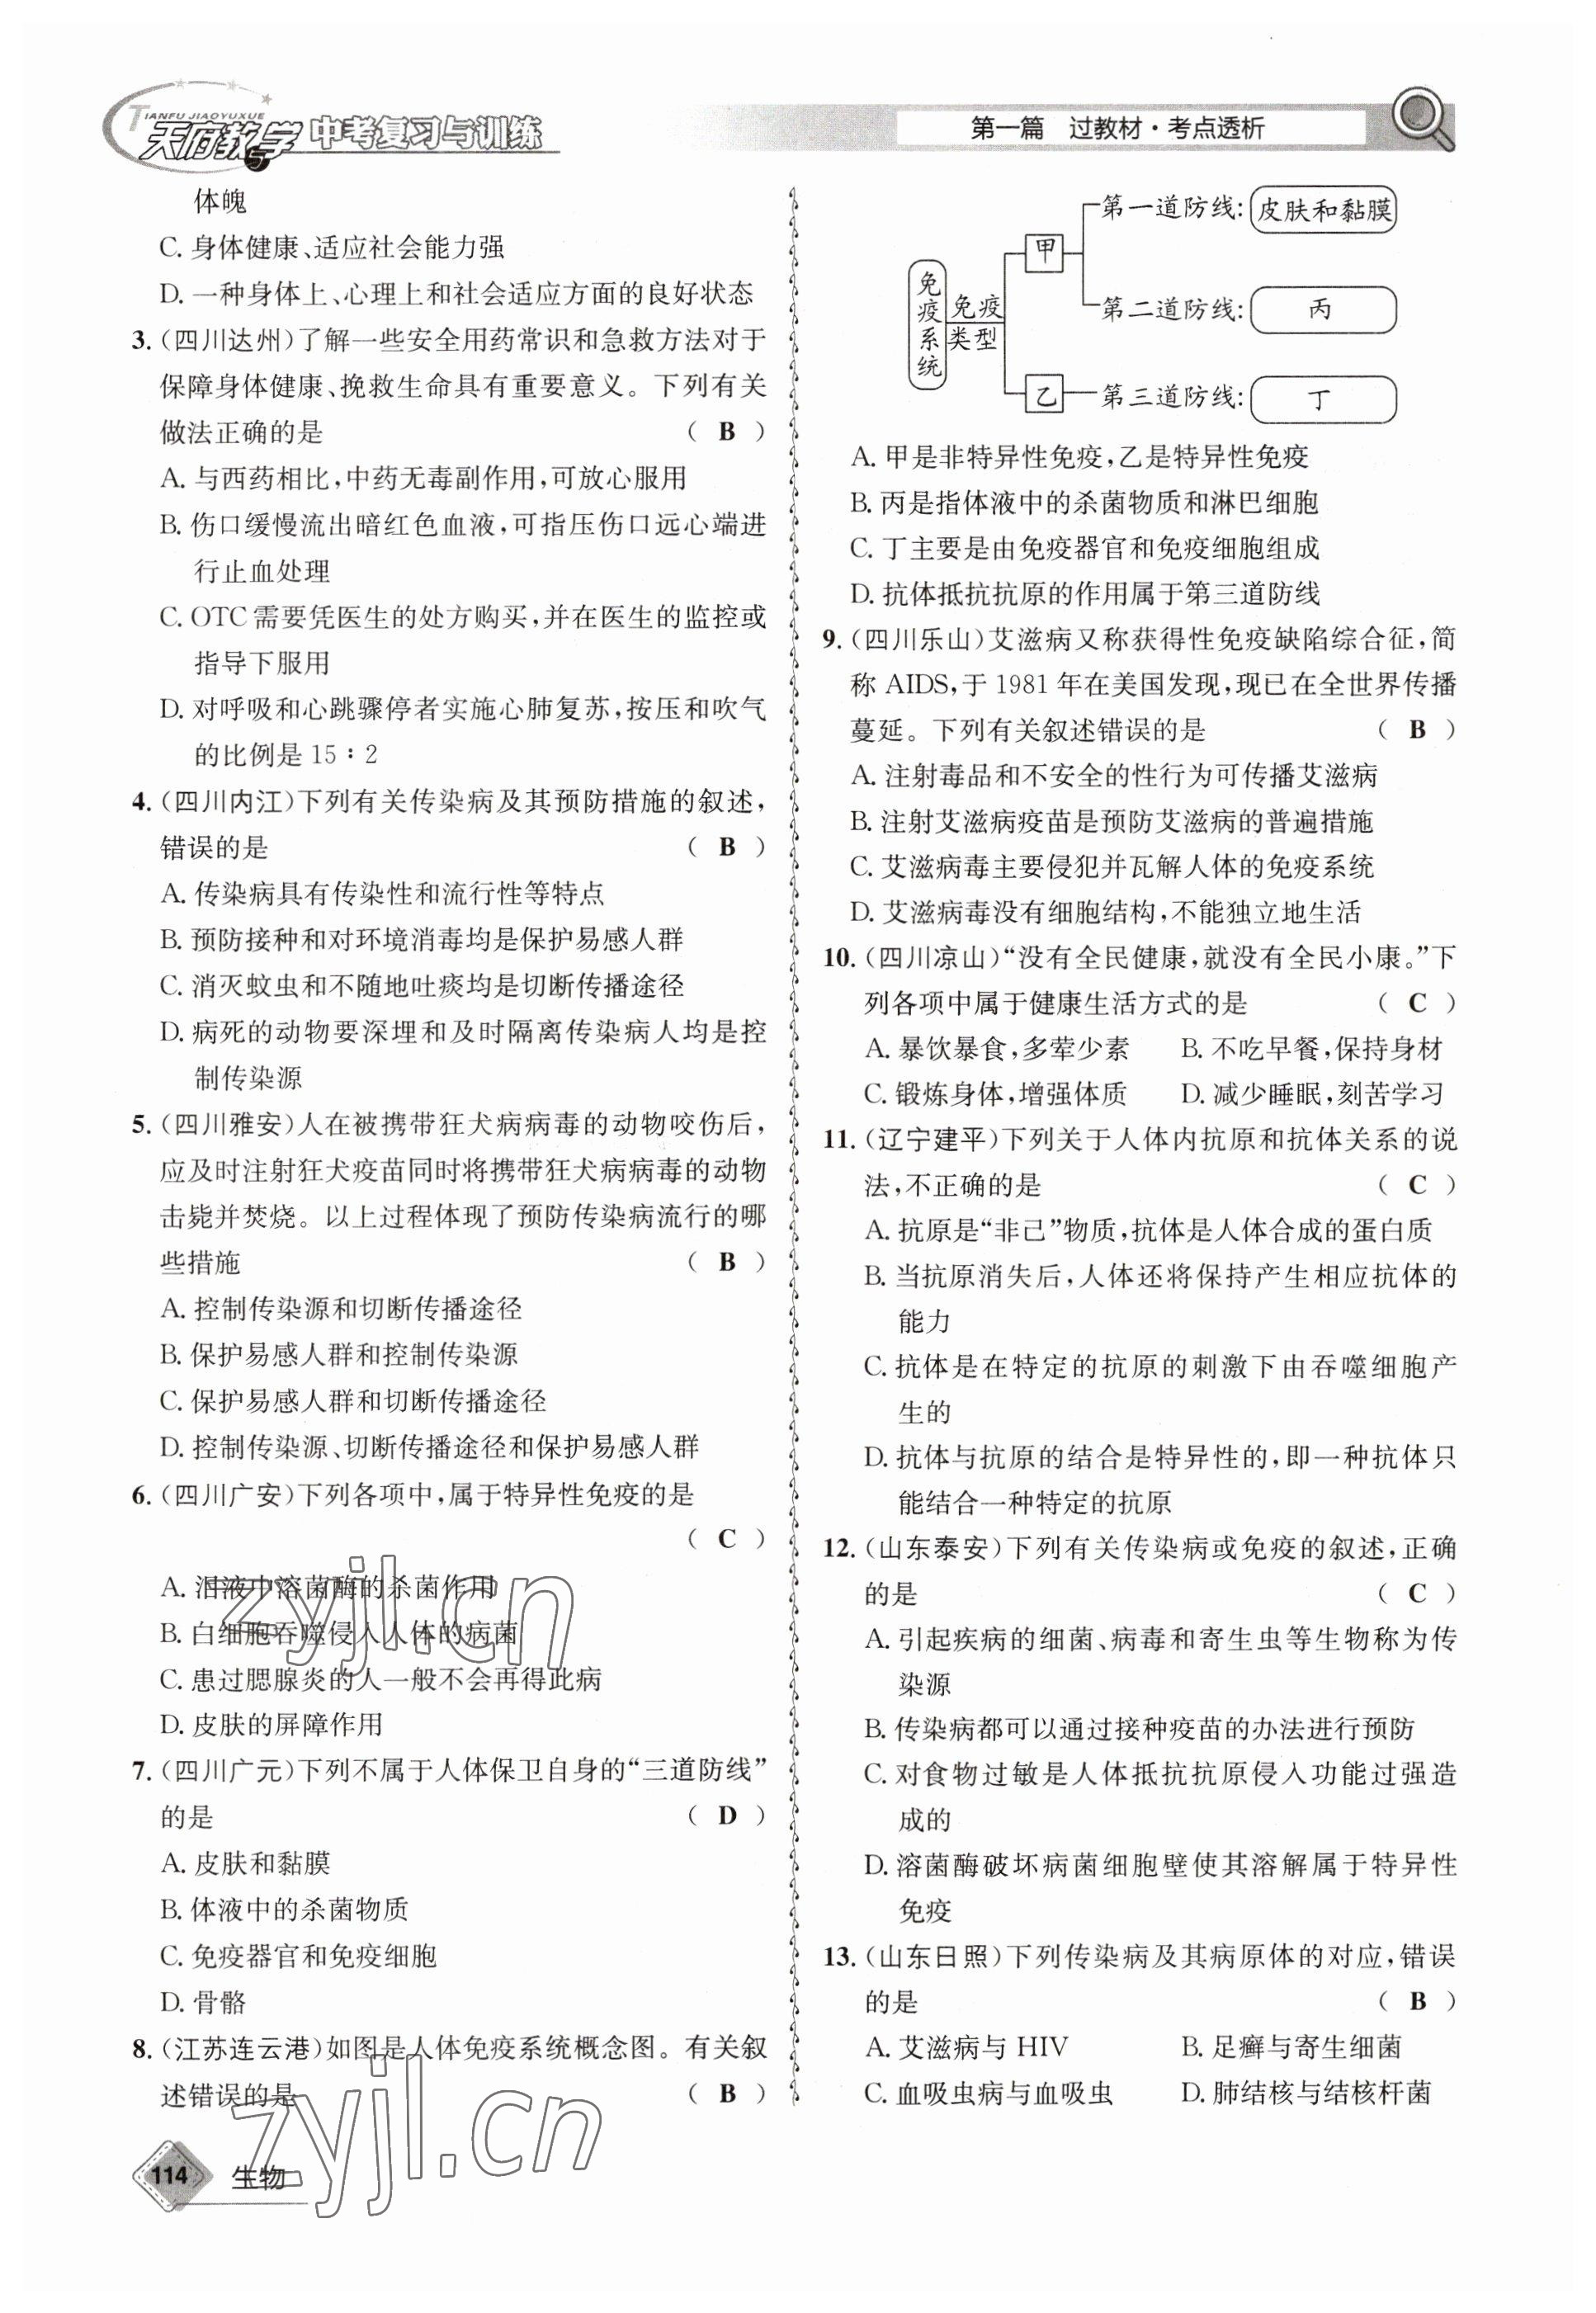 TIANFU JIAOYUXUE
天府教与学 中考复习与训练
第一篇 过教材·考点透析
体魄
C. 身体健康、适应社会能力强
D. 一种身体上、心理上和社会适应方面的良好状态
3. (四川达州)了解一些安全用药常识和急救方法对于
保障身体健康、挽救生命具有重要意义。下列有关
做法正确的是 ( B )
A. 与西药相比,中药无毒副作用,可放心服用
B. 伤口缓慢流出暗红色血液,可指压伤口远心端进
行止血处理
C. OTC 需要凭医生的处方购买,并在医生的监控或
指导下服用
D. 对呼吸和心跳骤停者实施心肺复苏,按压和吹气
的比例是 15∶2
4. (四川内江)下列有关传染病及其预防措施的叙述,
错误的是 ( B )
A. 传染病具有传染性和流行性等特点
B. 预防接种和对环境消毒均是保护易感人群
C. 消灭蚊虫和不随地吐痰均是切断传播途径
D. 病死的动物要深埋和及时隔离传染病人均是控
制传染源
5. (四川雅安)人在被携带狂犬病病毒的动物咬伤后,
应及时注射狂犬疫苗同时将携带狂犬病病毒的动物
击毙并焚烧。以上过程体现了预防传染病流行的哪
些措施 ( B )
A. 控制传染源和切断传播途径
B. 保护易感人群和控制传染源
C. 保护易感人群和切断传播途径
D. 控制传染源、切断传播途径和保护易感人群
6. (四川广安)下列各项中,属于特异性免疫的是
( C )
A. 泪液中溶菌酶的杀菌作用
B. 白细胞吞噬侵入人体的病菌
C. 患过腮腺炎的人一般不会再得此病
D. 皮肤的屏障作用
7. (四川广元)下列不属于人体保卫自身的“三道防线”
的是 ( D )
A. 皮肤和黏膜
B. 体液中的杀菌物质
C. 免疫器官和免疫细胞
D. 骨骼
8. (江苏连云港)如图是人体免疫系统概念图。有关叙
述错误的是 ( B )
免疫系统
免疫
类型
甲
第一道防线: 皮肤和黏膜
第二道防线: 丙
乙
第三道防线: 丁
A. 甲是非特异性免疫,乙是特异性免疫
B. 丙是指体液中的杀菌物质和淋巴细胞
C. 丁主要是由免疫器官和免疫细胞组成
D. 抗体抵抗抗原的作用属于第三道防线
9. (四川乐山)艾滋病又称获得性免疫缺陷综合征,简
称 AIDS,于 1981 年在美国发现,现已在全世界传播
蔓延。下列有关叙述错误的是 ( B )
A. 注射毒品和不安全的性行为可传播艾滋病
B. 注射艾滋病疫苗是预防艾滋病的普遍措施
C. 艾滋病毒主要侵犯并瓦解人体的免疫系统
D. 艾滋病毒没有细胞结构,不能独立地生活
10. (四川凉山)“没有全民健康,就没有全民小康。”下
列各项中属于健康生活方式的是 ( C )
A. 暴饮暴食,多荤少素 B. 不吃早餐,保持身材
C. 锻炼身体,增强体质 D. 减少睡眠,刻苦学习
11. (辽宁建平)下列关于人体内抗原和抗体关系的说
法,不正确的是 ( C )
A. 抗原是“非己”物质,抗体是人体合成的蛋白质
B. 当抗原消失后,人体还将保持产生相应抗体的
能力
C. 抗体是在特定的抗原的刺激下由吞噬细胞产
生的
D. 抗体与抗原的结合是特异性的,即一种抗体只
能结合一种特定的抗原
12. (山东泰安)下列有关传染病或免疫的叙述,正确
的是 ( C )
A. 引起疾病的细菌、病毒和寄生虫等生物称为传
染源
B. 传染病都可以通过接种疫苗的办法进行预防
C. 对食物过敏是人体抵抗抗原侵入功能过强造
成的
D. 溶菌酶破坏病菌细胞壁使其溶解属于特异性
免疫
13. (山东日照)下列传染病及其病原体的对应,错误
的是 ( B )
A. 艾滋病与 HIV B. 足癣与寄生细菌
C. 血吸虫病与血吸虫 D. 肺结核与结核杆菌
zyjl.cn
zyjl.cn
114 生物